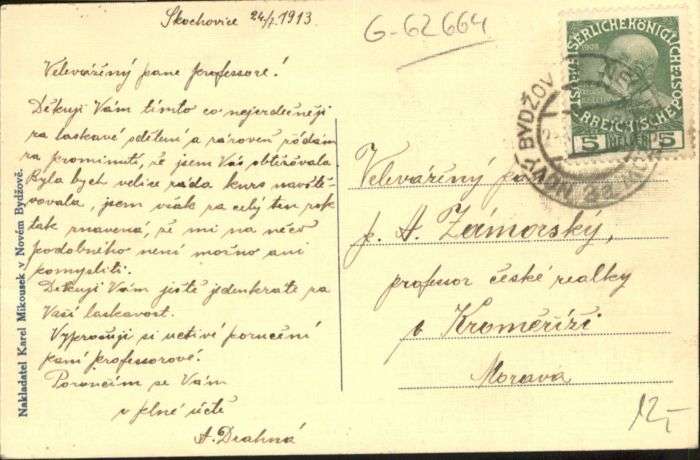 Skochovice 24/7. 1913
G-62664
Velevážený pane professore!
Děkuji Vám tímto co nejsrdečněji
za laskavé sdělení a zároveň žádám
za prominutí, že jsem Vás obtěžovala.
Byla bych velice ráda kurs navště-
vovala, jsem však za celý ten rok
tak znavená, že mi na něco
podobného není možno ani
pomysliti.
Děkuji Vám ještě jedenkráte za
Vaší laskavost.
Vyprošuji si uctivé poručení
paní professorové.
Poroučím se Vám
v plné úctě
A. Drahná
Nakladatel Karel Mikousek v Novém Bydžově.
NOVÝ BYDŽOV
1908
5 HELLER 5
Velevážený
p. A. Zámorský,
professor české realky
v Kroměříži
Morava
12,-